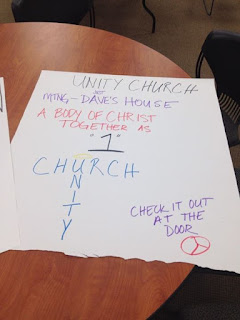 UNITY CHURCH
MTNG - DAVE'S HOUSE
A BODY OF CHRIST
TOGETHER AS
"1"
CHURCH
N
I
T
Y
CHECK IT OUT
AT THE
DOOR